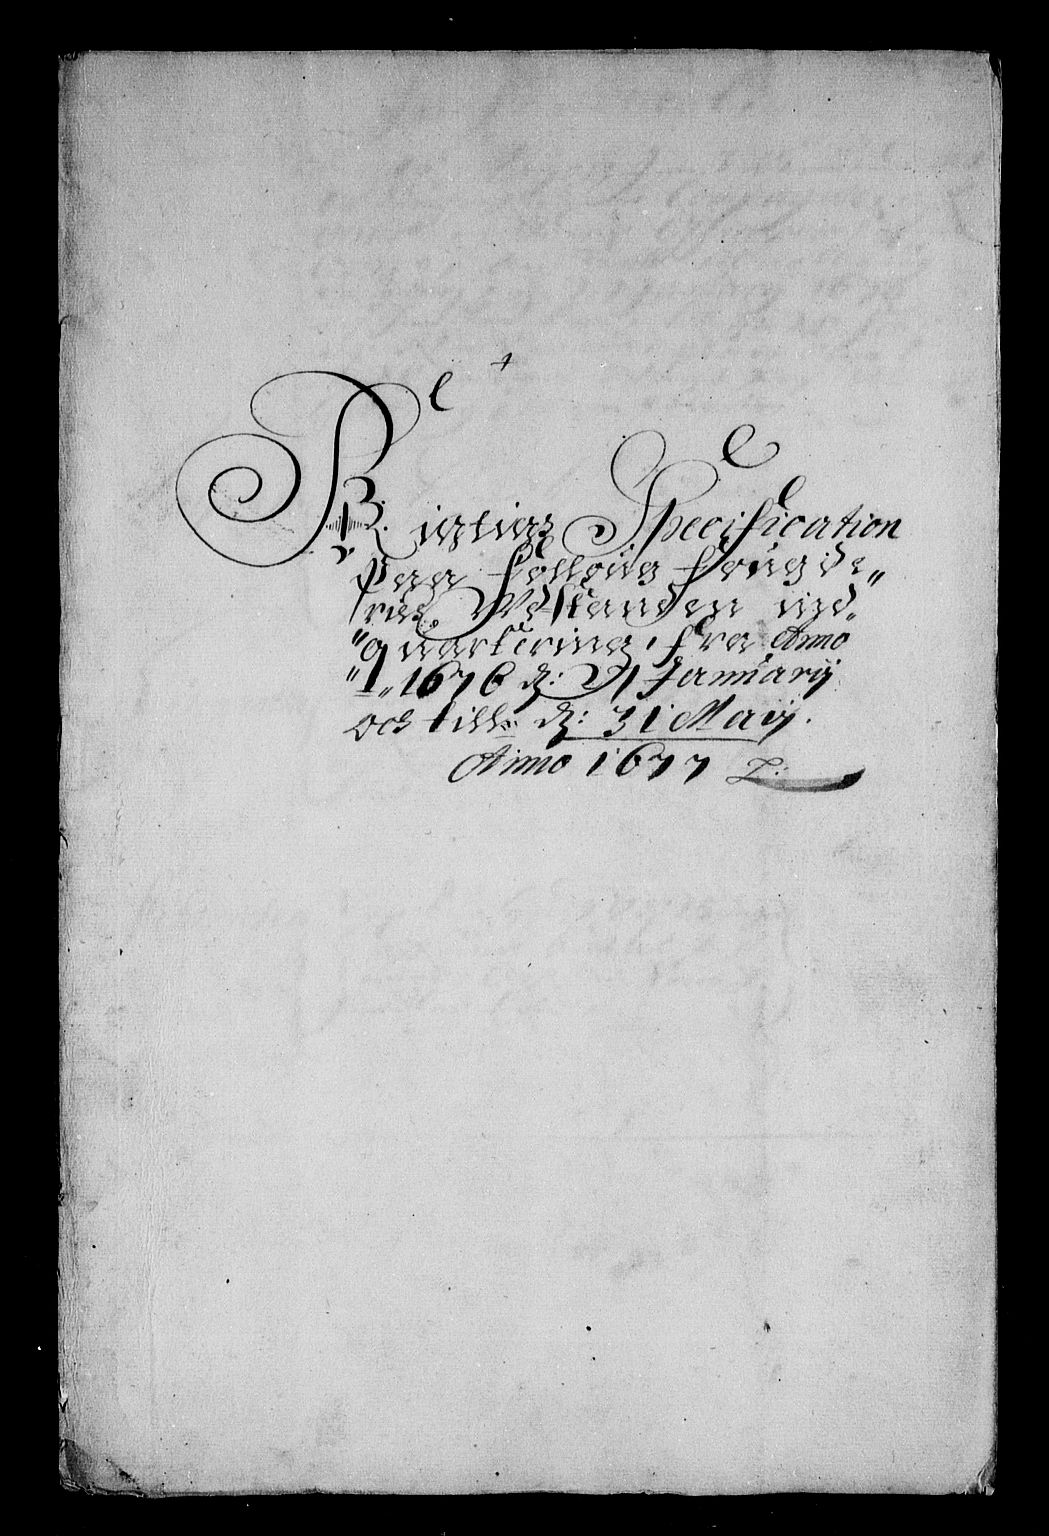 Rigtig Specification
Paa Folloug fougde„
ries Udstanden ind„
„quartering, fra Anno
„1676 dℨ: 1 January
och till dℨ: 31 Maij.
Anno 1677